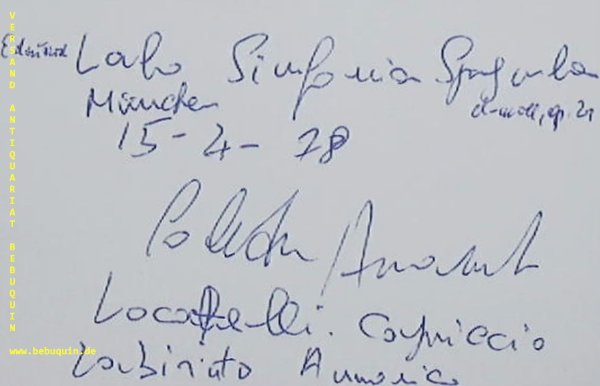 Edouard Lalo Sinfonia Spagnola
München d-moll, op. 21
15-4-78
Locatelli. Capriccio
Labirinto Armonico
VERSAND ANTIQUARIAT BEBUQUIN
www.bebuquin.de